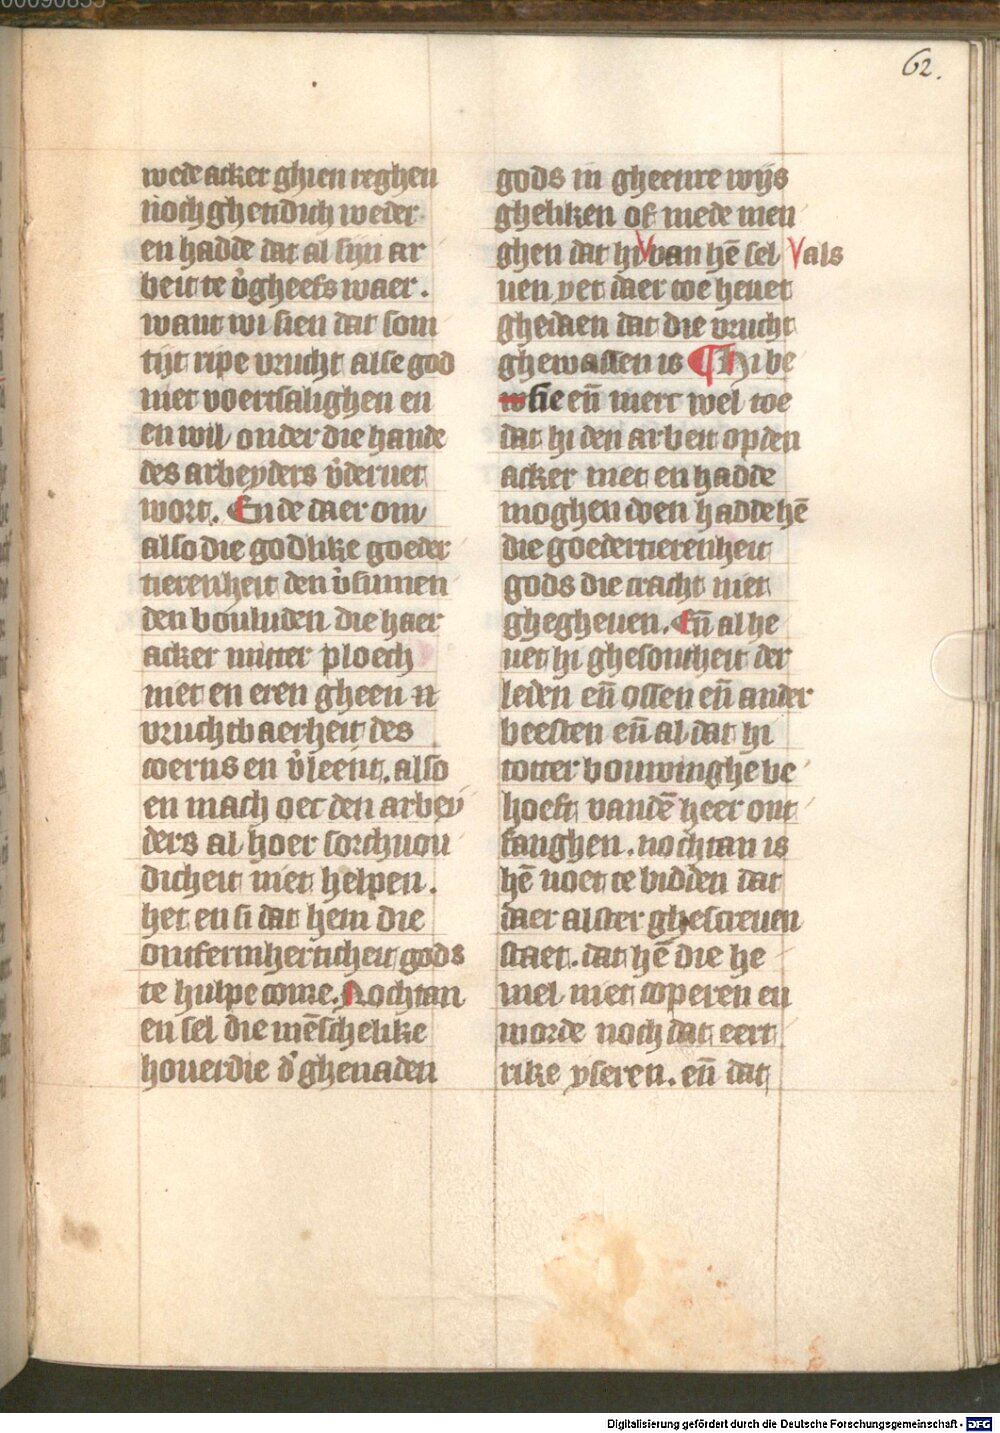 62.
wede acker ghien reghen
noch ghendich weder
en hadde dat al sijn ar
beit te v̉gheefs waer.
want wi sien dat som
tijt ripe vrucht alse god
niet voertsalighen en
en wil onder die hande
des arbeyders v̉deruet
wort. Ende daer om
also die godlike goeder
tierenheit den v̉sumen
den bouluden die haer
acker mitter ploech
niet en eren gheen n
vruchtbaerheit des
coerns en v̉leent. also
en mach oec den arbey
ders al hoer sorchuou
dicheit niet helpen.
het en si dat hem die
ontfermherticheit gods
te hulpe come. Nochtan
en sel die mēschelike
houerdie d̉ ghenaden
gods in gheenre wijs
gheliken of mede men
ghen dat hi van hē sel
vals
uen yet daer toe heuet
ghedaen dat die vrucht
ghewassen is ¶ Hi be
sie en̄ merc wel toe
dat hi den arbeit opden
acker niet en hadde
moghen doen hadde hē
die goedertierenheit
gods die cracht niet
ghegheuen. En̄ al he
uet hi ghesontheit der
leden en̄ ossen en̄ ander
beesten en̄ al dat hi
totter bouwinghe be
hoeft vandē heer ont
fanghen. nochtan is
hē noet te bidden dat
daer after ghescreuen
staet. dat hē die he
mel niet coperen en
worde noch dat eert
rike yseren. en̄ dat
Digitalisierung gefördert durch die Deutsche Forschungsgemeinschaft - DFG